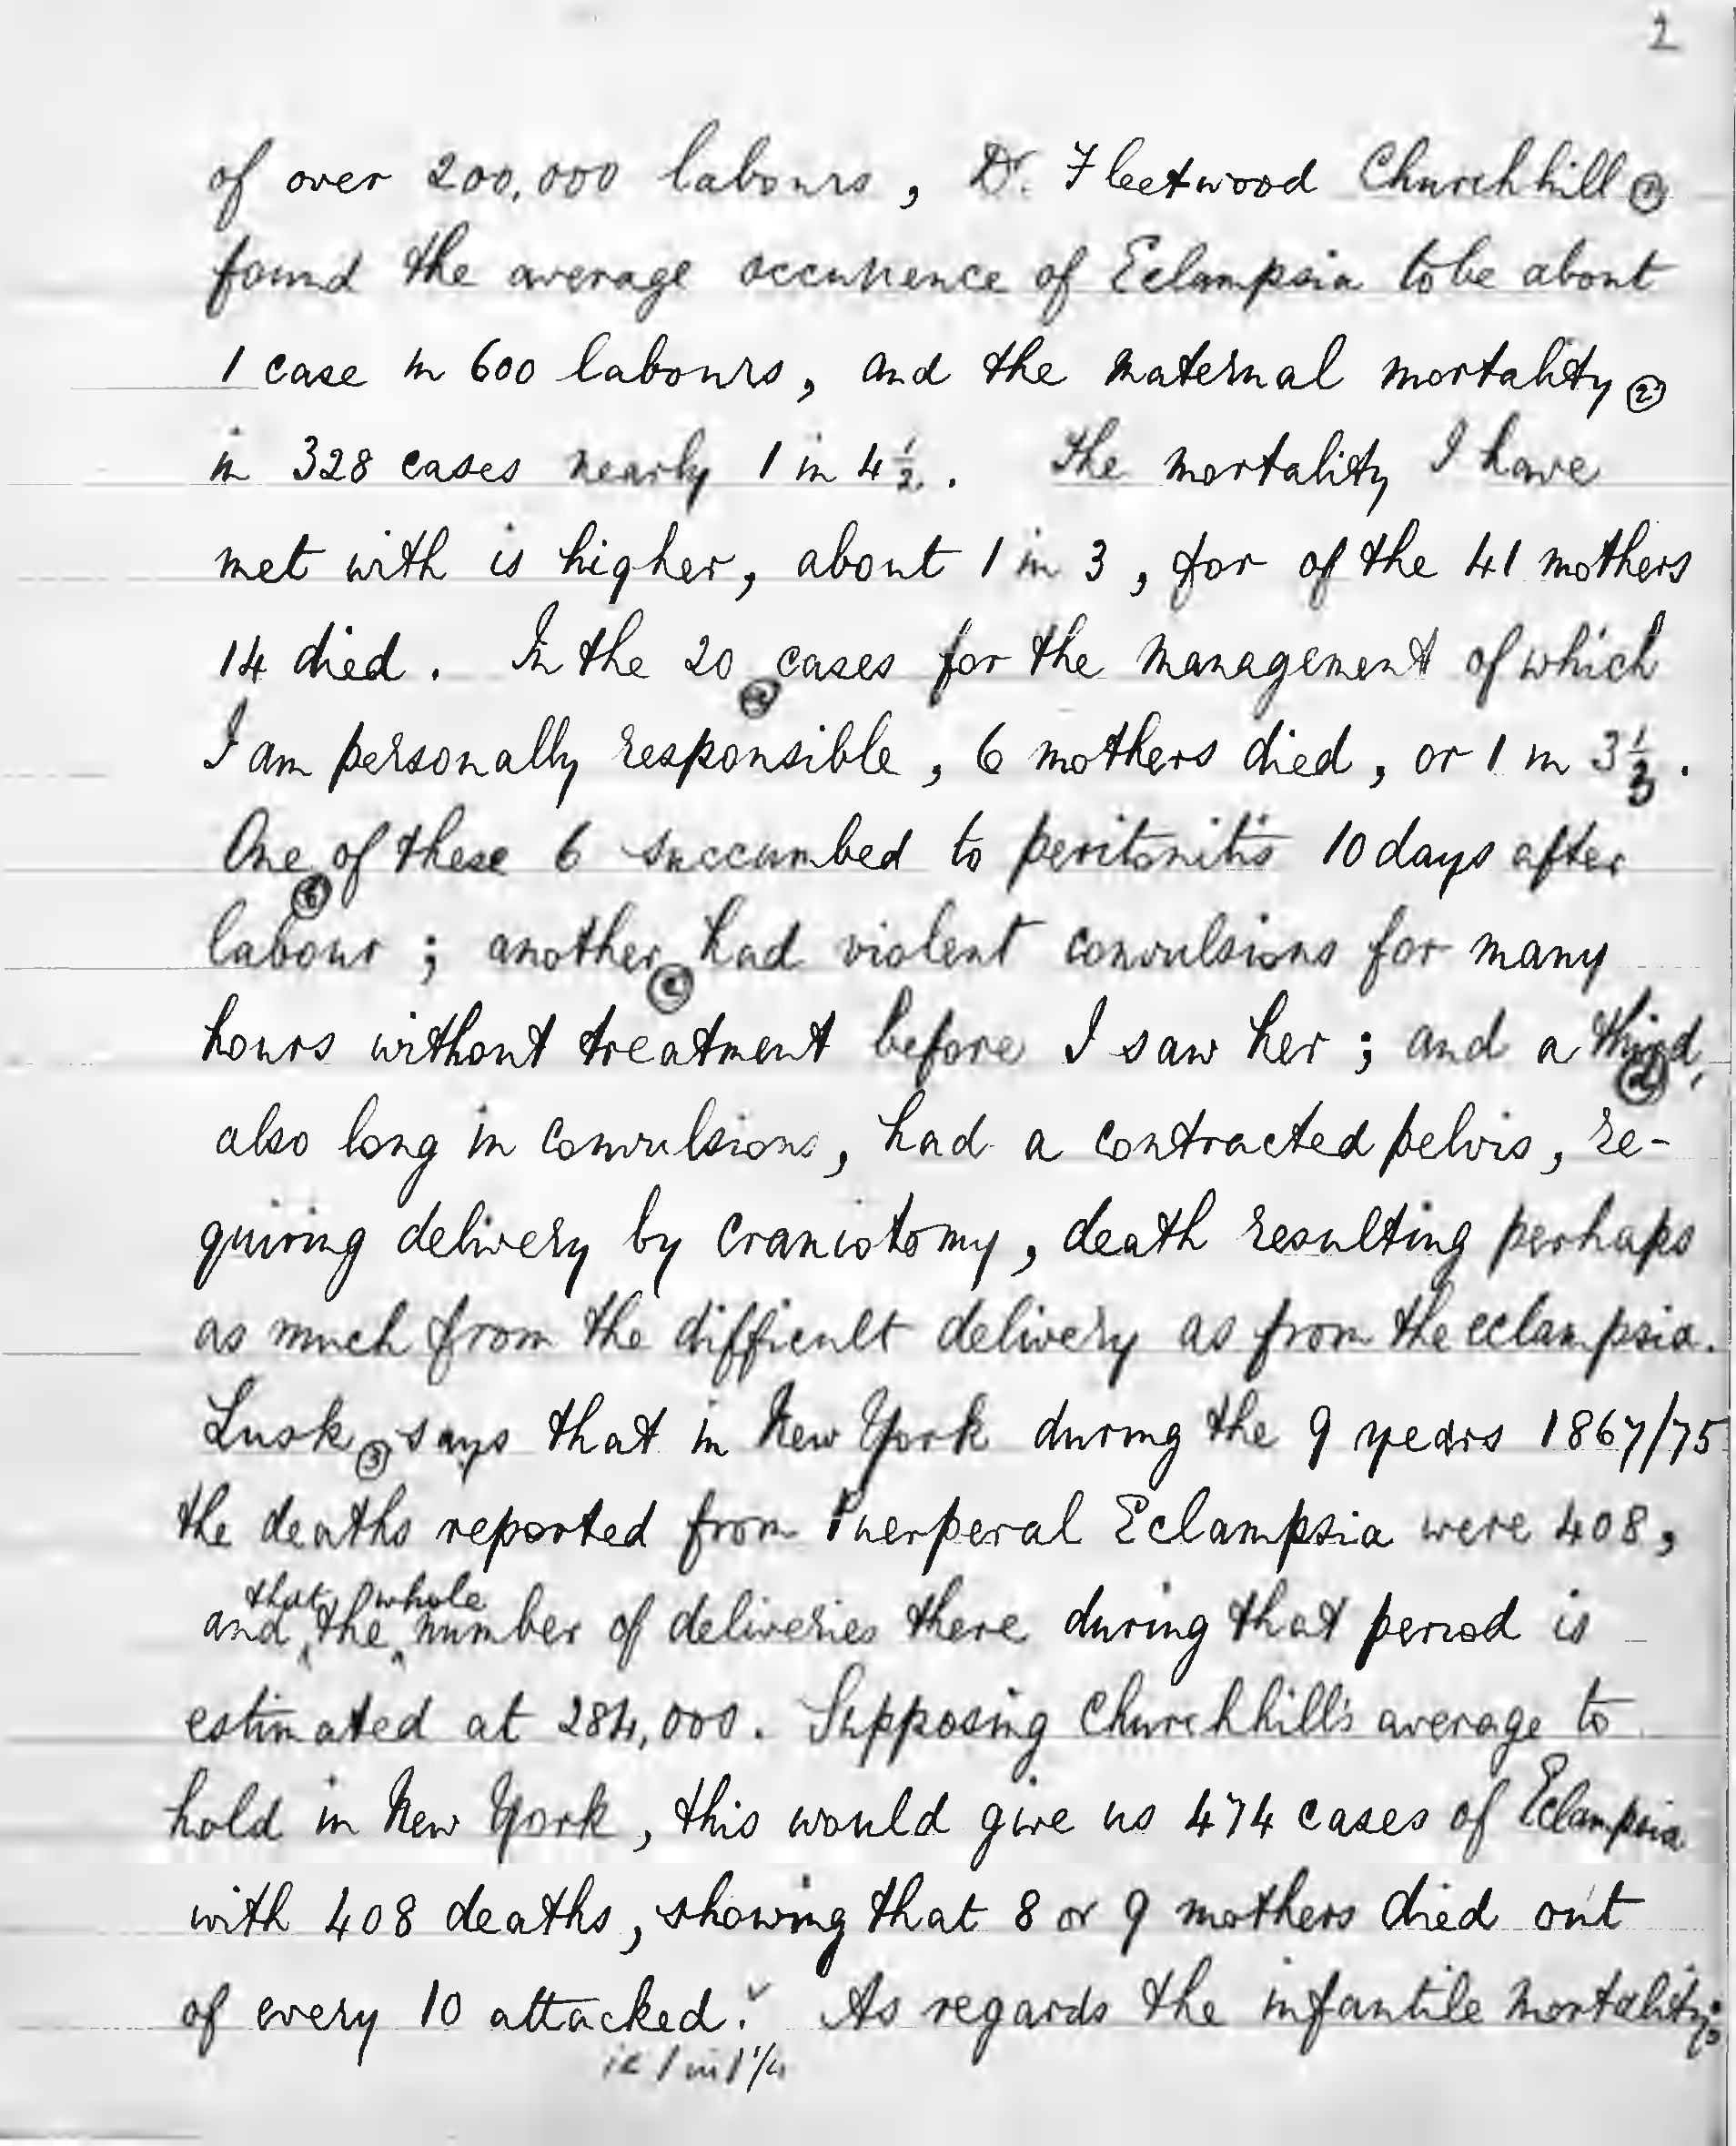 2
of over 200,000 labours, Dr. Fleetwood Churchhill ①
found the average occurrence of Eclampsia to be about
1 case in 600 labours, and the maternal mortality ②
in 328 cases nearly 1 in 4 1/2. The mortality I have
met with is higher, about 1 in 3, for of the 41 mothers
14 died. In the 20 cases for the management of which
I am personally responsible, 6 mothers died, or 1 in 3 1/3.
One of these 6 succumbed to peritonitis 10 days after
labour; another had violent convulsions for many
hours without treatment before I saw her; and a third,
also long in convulsions, had a contracted pelvis, re-
quiring delivery by craniotomy, death resulting perhaps
as much from the difficult delivery as from the eclampsia.
Lusk ③ says that in New York during the 9 years 1867/75
the deaths reported from Puerperal Eclampsia were 408,
and that the whole number of deliveries there during that period is
estimated at 284,000. Supposing Churchhill's average to
hold in New York, this would give us 474 cases of Eclampsia
with 408 deaths, showing that 8 or 9 mothers died out
of every 10 attacked. As regards the infantile mortality:
ie 1 in 1 1/4